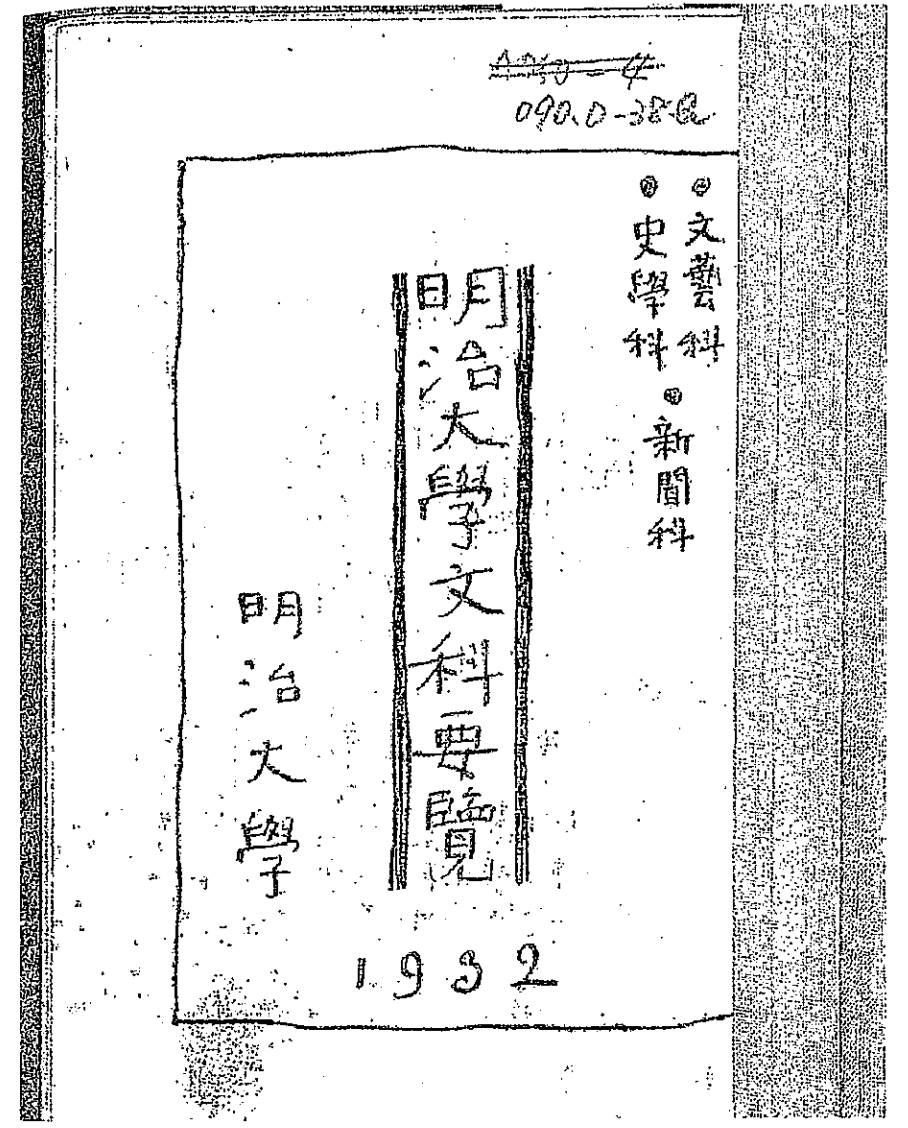 090.0-38-a
◉文藝科
◉史學科
◉新聞科
明治大學文科要覽
明治大學
1932